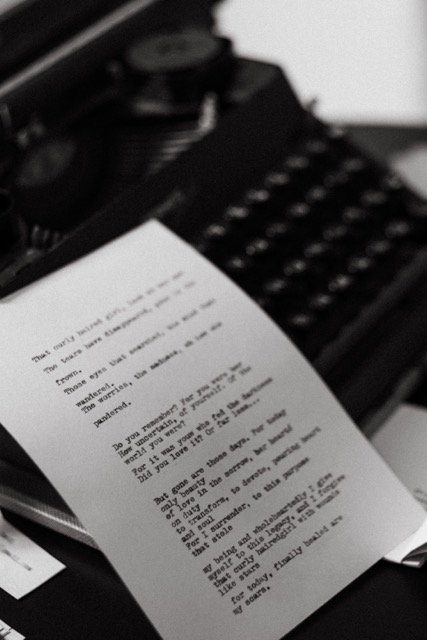 That curly haired girl, look at her now
The tears have disappeared, gone is the
frown.
Those eyes that searched, the mind that
wandered.
The worries, the sadness, oh how she
pandered.
Do you remember? For you were her
How uncertain, of yourself. Of the
world you were?
For it was youm who fed the darkness
Did you love it? Or far less...
But gone are those days. For today
only beauty
of love in the sorrow, her heard/
on duty
to transform, to devote, pouring heart
and soul
For I surrender, to this purpose
that stole
my being and wholeheartedly I give
myself to this legacy, and I forgive
that curly hairedgirl with wounds
like stars
for today, finally healed are
my scars.